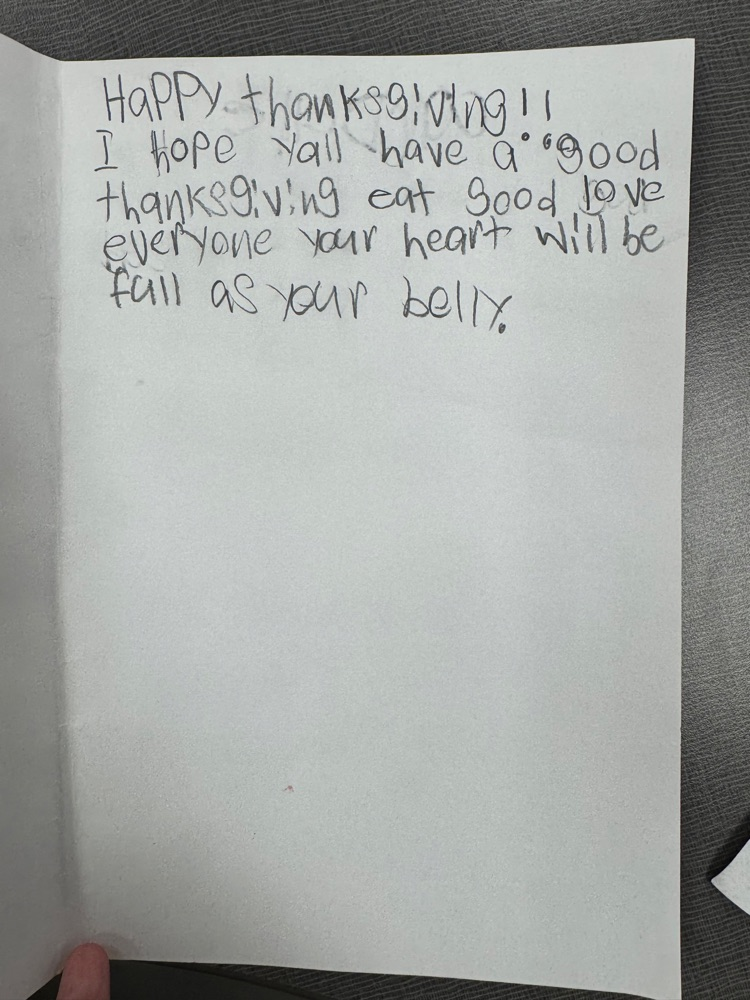 Happy thanksgiving!!
I hope yall have a good
thanksgiving eat good love
everyone your heart will be
full as your belly.